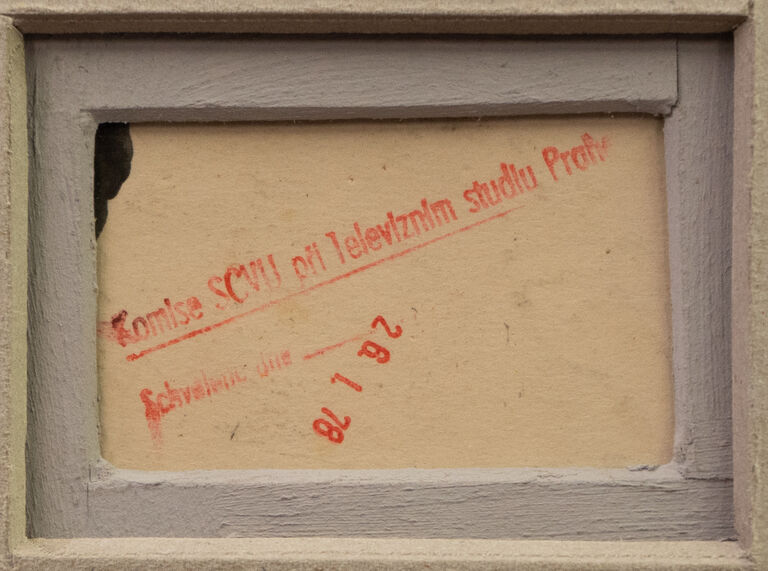 Komise SČVU při Televizním studiu Praha
Schváleno dne
26 1 78